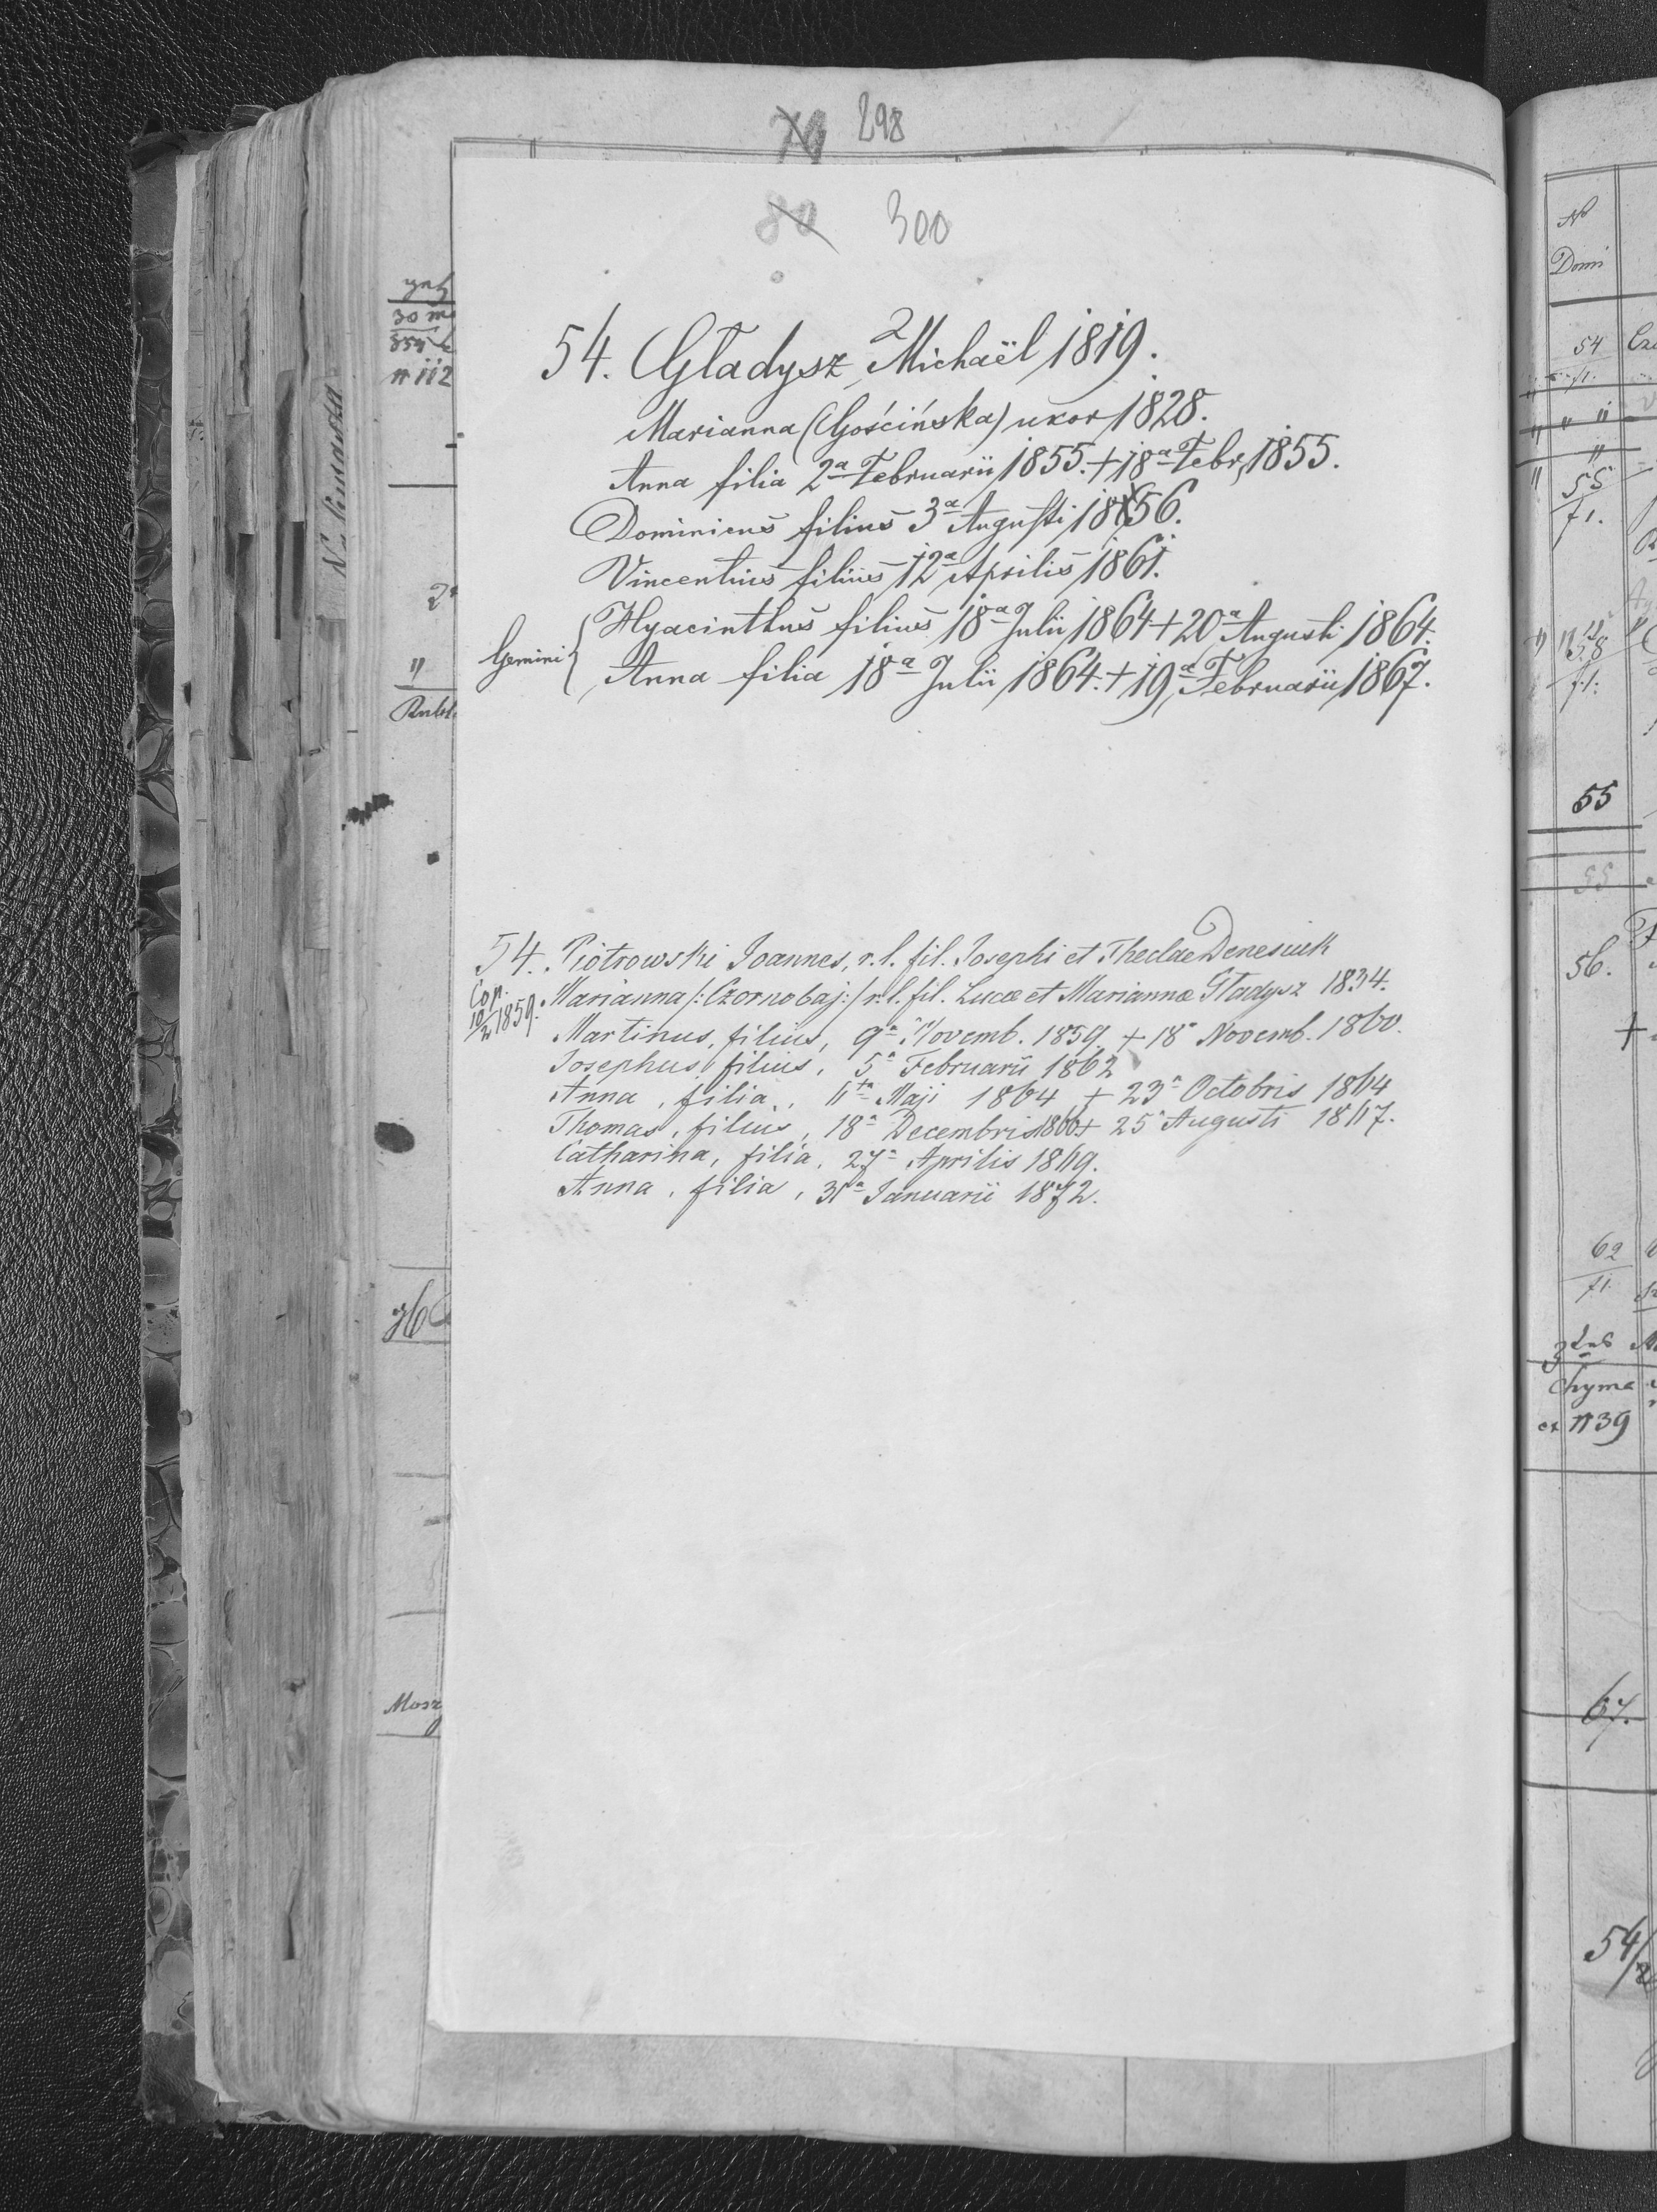 298
80 300
54. Gładysz Michaël 1819.
2
Marianna (Gościńska) uxor 1828.
Anna filia 2a Februarii 1855. + 18a Febr. 1855.
Dominicus filius 3a Augusti 1856.
Vincentius filius 12a Aprilis 1861.
Gemini { Hyacinthus filius 18a Julii 1864 + 20a Augusti 1864.
Anna filia 18a Julii 1864. + 19a Februarii 1867.
54. Piotrowski Joannes, r. l. fil. Josephi et Theclae Denesiuk
Cop. 10/2 1859. Marianna /: Czornobaj :/ r. l. fil. Lucæ et Marianna Gładysz 1834.
Martinus, filius, 9a Novemb. 1859. + 18a Novemb. 1860.
Josephus, filius, 5a Februarii 1862
Anna, filia, Maji 1864 + 23a Octobris 1864
Thomas, filius, 18a Decembris 1866 + 25a Augusti 1867.
Catharina, filia, 27a Aprilis 1869.
Anna, filia, 31a Januarii 1872.
30
n 112
"
36
Mosz
No
Domi
54
55
f1.
58
f1.
55
55
56.
+
62
f1.
Chyma
ex n 39
67.
54/2